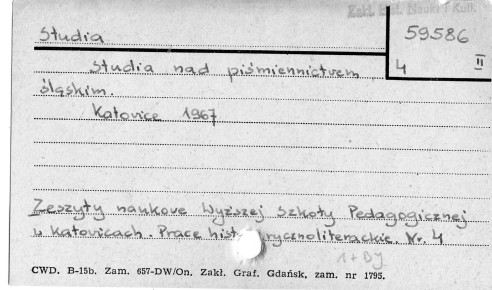 Zakł. Hist. Nauki i Kult.
Studia
59586
4 II
Studia nad piśmiennictwem
śląskim.
Katowice 1967
Zeszyty naukowe Wyższej Szkoły Pedagogicznej
w Katowicach. Prace hist rycznoliterackie. Nr. 4
1+DJ
CWD. B-15b. Zam. 657-DW/On. Zakł. Graf. Gdańsk, zam. nr 1795.